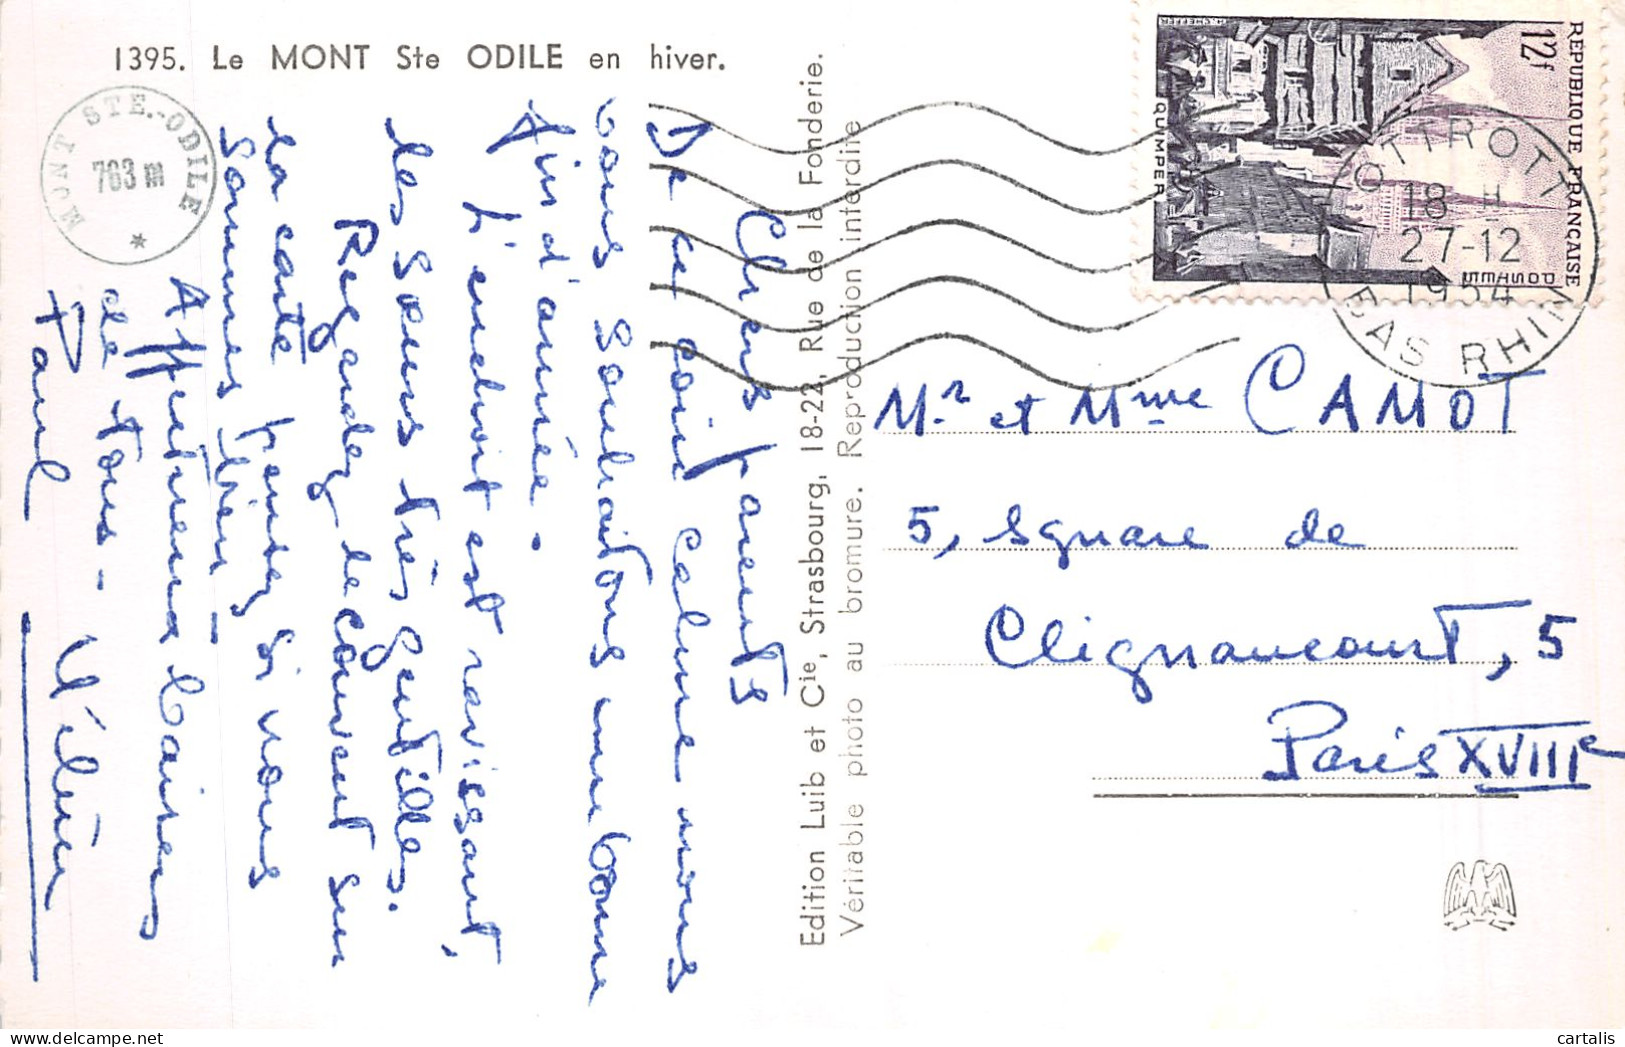 1395. Le MONT Ste ODILE en hiver.
MONT STE.-ODILE
763 m
*
Chers parents
De ce coin calme nous
vous souhaitons une bonne
fin d'année.
L'endroit est ravissant,
les sœurs très gentilles.
Regardez le couvent sur
la carte pensez si nous
sommes bien -
Affectueux baisers
de tous -
Paul
Edition Luib et Cie, Strasbourg, 18-22, Rue de la Fonderie.
Véritable photo au bromure. Reproduction interdite
REPUBLIQUE FRANÇAISE
12f
POSTES
QUIMPER
OTTROTT
18 H
27-12
1954
BAS RHIN
Mr et Mme CAMOT
5, square de
Clignancourt, 5
Paris XVIIIe
cartalis on www.delcampe.net